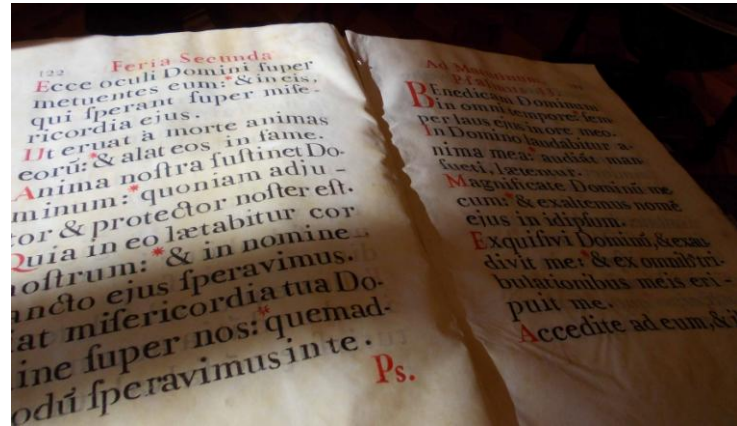 122 Feria Secunda
Ecce oculi Domini ſuper
metuentes eum:* & in eis,
qui ſperant ſuper miſe-
ricordia ejus.
Ut eruat à morte animas
eorū:* & alat eos in fame.
Anima noſtra ſuſtinet Do-
minum:* quoniam adju-
tor & protector noſter eſt.
Quia in eo lætabitur cor
noſtrum:* & in nomine
ancto ejus ſperavimus.
iat miſericordia tua Do-
ine ſuper nos:* quemad-
odū ſperavimus in te.
Ps.
Ad
Pſalmus
BEnedicam Dominum
in omni tempore:* ſem
per laus ejus in ore meo.
In Domino laudabitur a-
nima mea:* audiāt man-
ſueti, lætentur.
Magnificate Dominū me
cum:* & exaltemus nomē
ejus in idipſum.
Exquiſivi Dominū, & exau
divit me:* & ex omnib' tri-
bulationibus meis eri-
puit me.
Accedite ad eum, & i